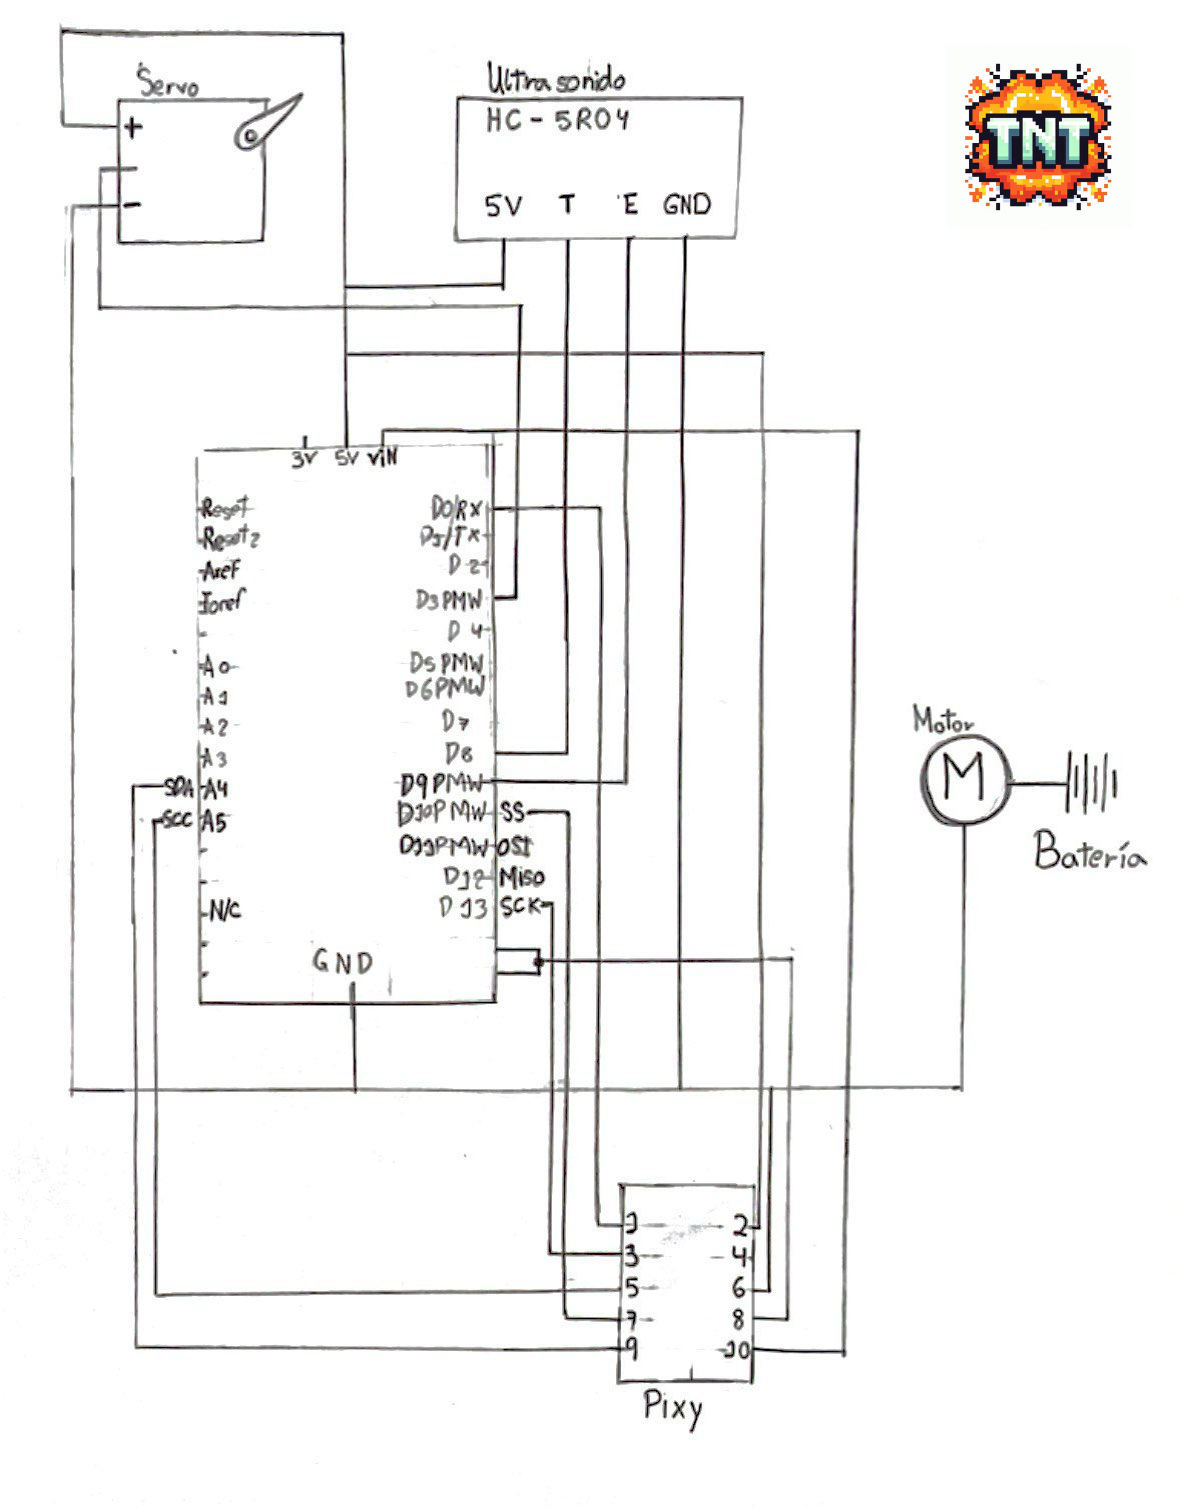 Servo
+
-
Ultrasonido
HC - SR04
5V T E GND
TNT
3V 5V VIN
Reset
Reset2
Aref
Ioref
A0
A1
A2
A3
SDA A4
SCC A5
N/C
D0/RX
D1/TX
D2
D3PMW
D4
D5PMW
D6PMW
D7
D8
D9PMW
D10PMW SS
D11PMW OSI
D12 Miso
D13 SCK
GND
Motor
M
Batería
1 2
3 4
5 6
7 8
9 10
Pixy